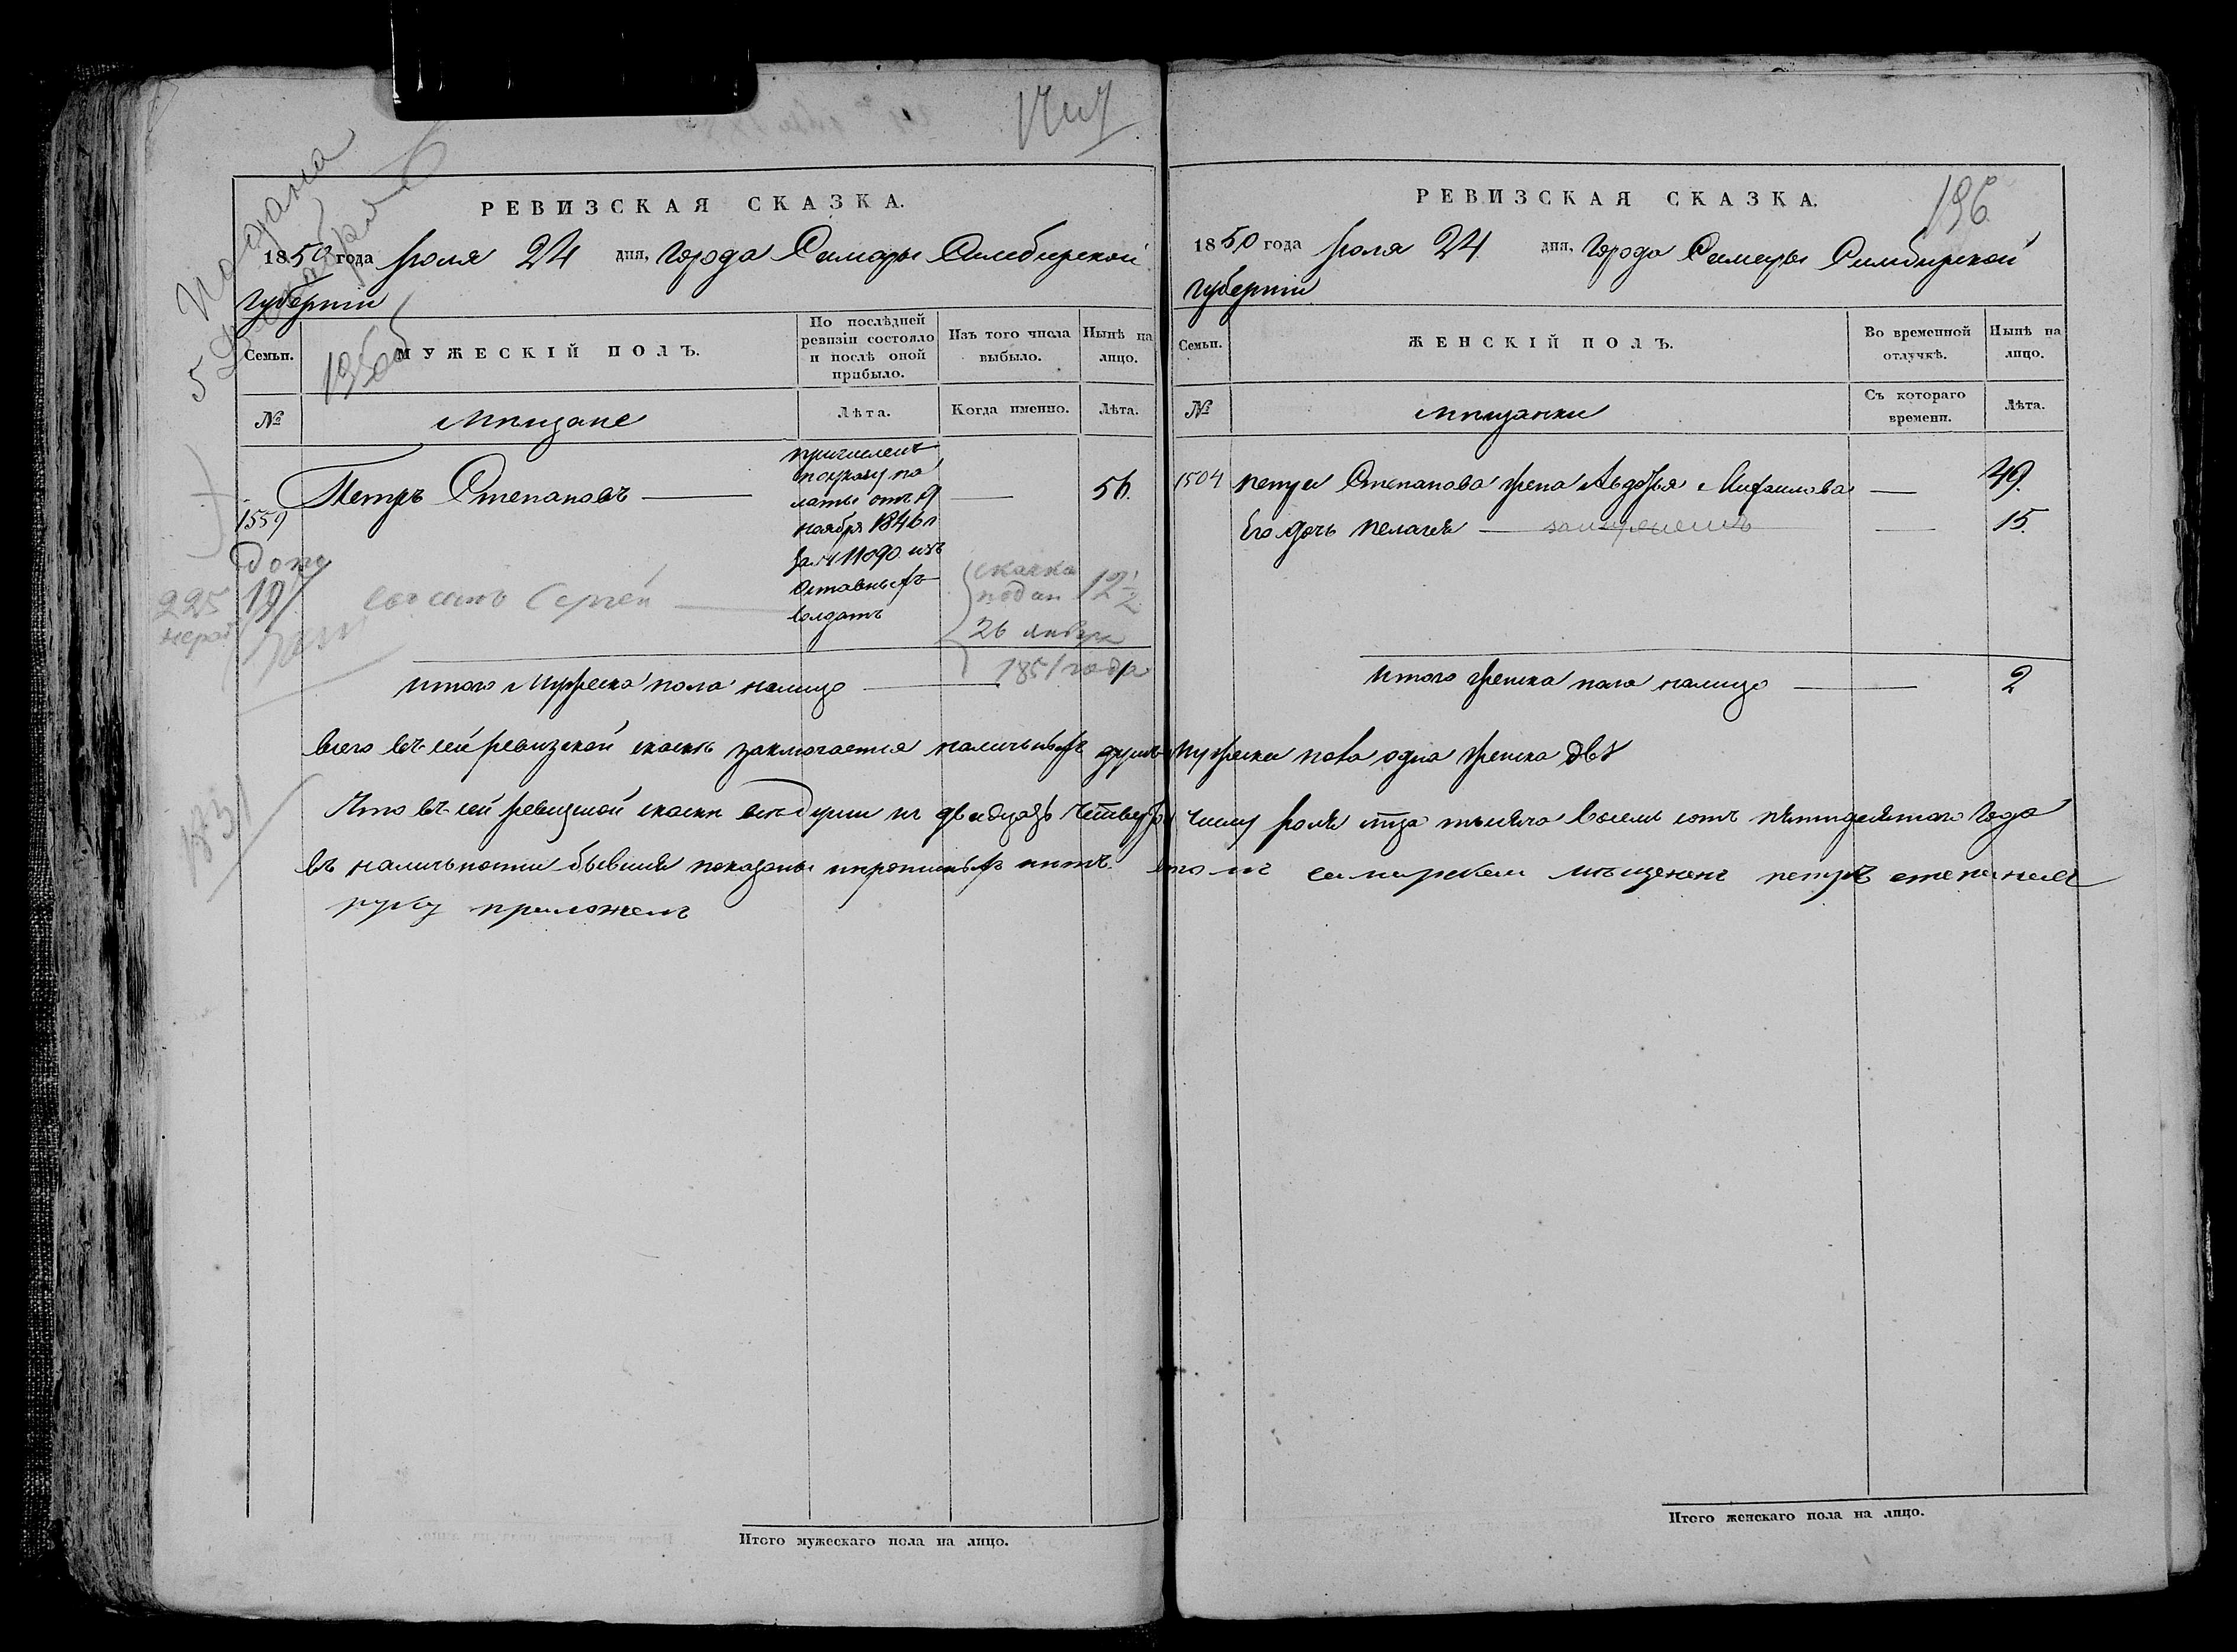 Подана
5 Декабря
1950
РЕВИЗСКАЯ СКАЗКА.
1850 года Іюля 24 дня, Города Самары Симбирской
Губерніи
Семьи.
МУЖЕСКІЙ ПОЛЪ.
По послѣдней ревизіи состояло и послѣ оной прибыло.
Изъ того числа выбыло.
Нынѣ на лицо.
№
Мѣщане
Лѣта.
Когда именно.
Лѣта.
1559
Петръ Степановъ
причисленъ
по указу па
латы отъ 19
ноября 1846 г
за № 11090 изъ
отставныхъ
солдатъ
56.
225
19
сынъ Сергей
сказка
подан
26 января
1851 года
12 1/2
итого Мужеска пола налицо
1
всего въ сей ревизской сказкѣ заключается наличныхъ душъ мужеска пола одна женска двѣ
Что въ сей ревизской сказкѣ всѣ души къ двадцать четверто числу Іюля мца тысяча восемь сотъ пятидесятаго года
въ наличности бывшія показаны и прописныхъ нѣтъ.
самарскай мѣщененъ петръ степановъ
руку приложелъ
1831
Итого мужескаго пола на лицо.
196
РЕВИЗСКАЯ СКАЗКА.
1850 года Іюля 24 дня, Города Самары Симбирской
Губерніи
Семьи.
ЖЕНСКІЙ ПОЛЪ.
Во временной отлучкѣ.
Нынѣ на лицо.
№
Мѣщанки
Съ котораго времени.
Лѣта.
1504 петра Степанова жена Авдотья Михаилова 49.
Его дочь пелагея замужемъ 15.
итого женска пола налицо 2
Итого женскаго пола на лицо.